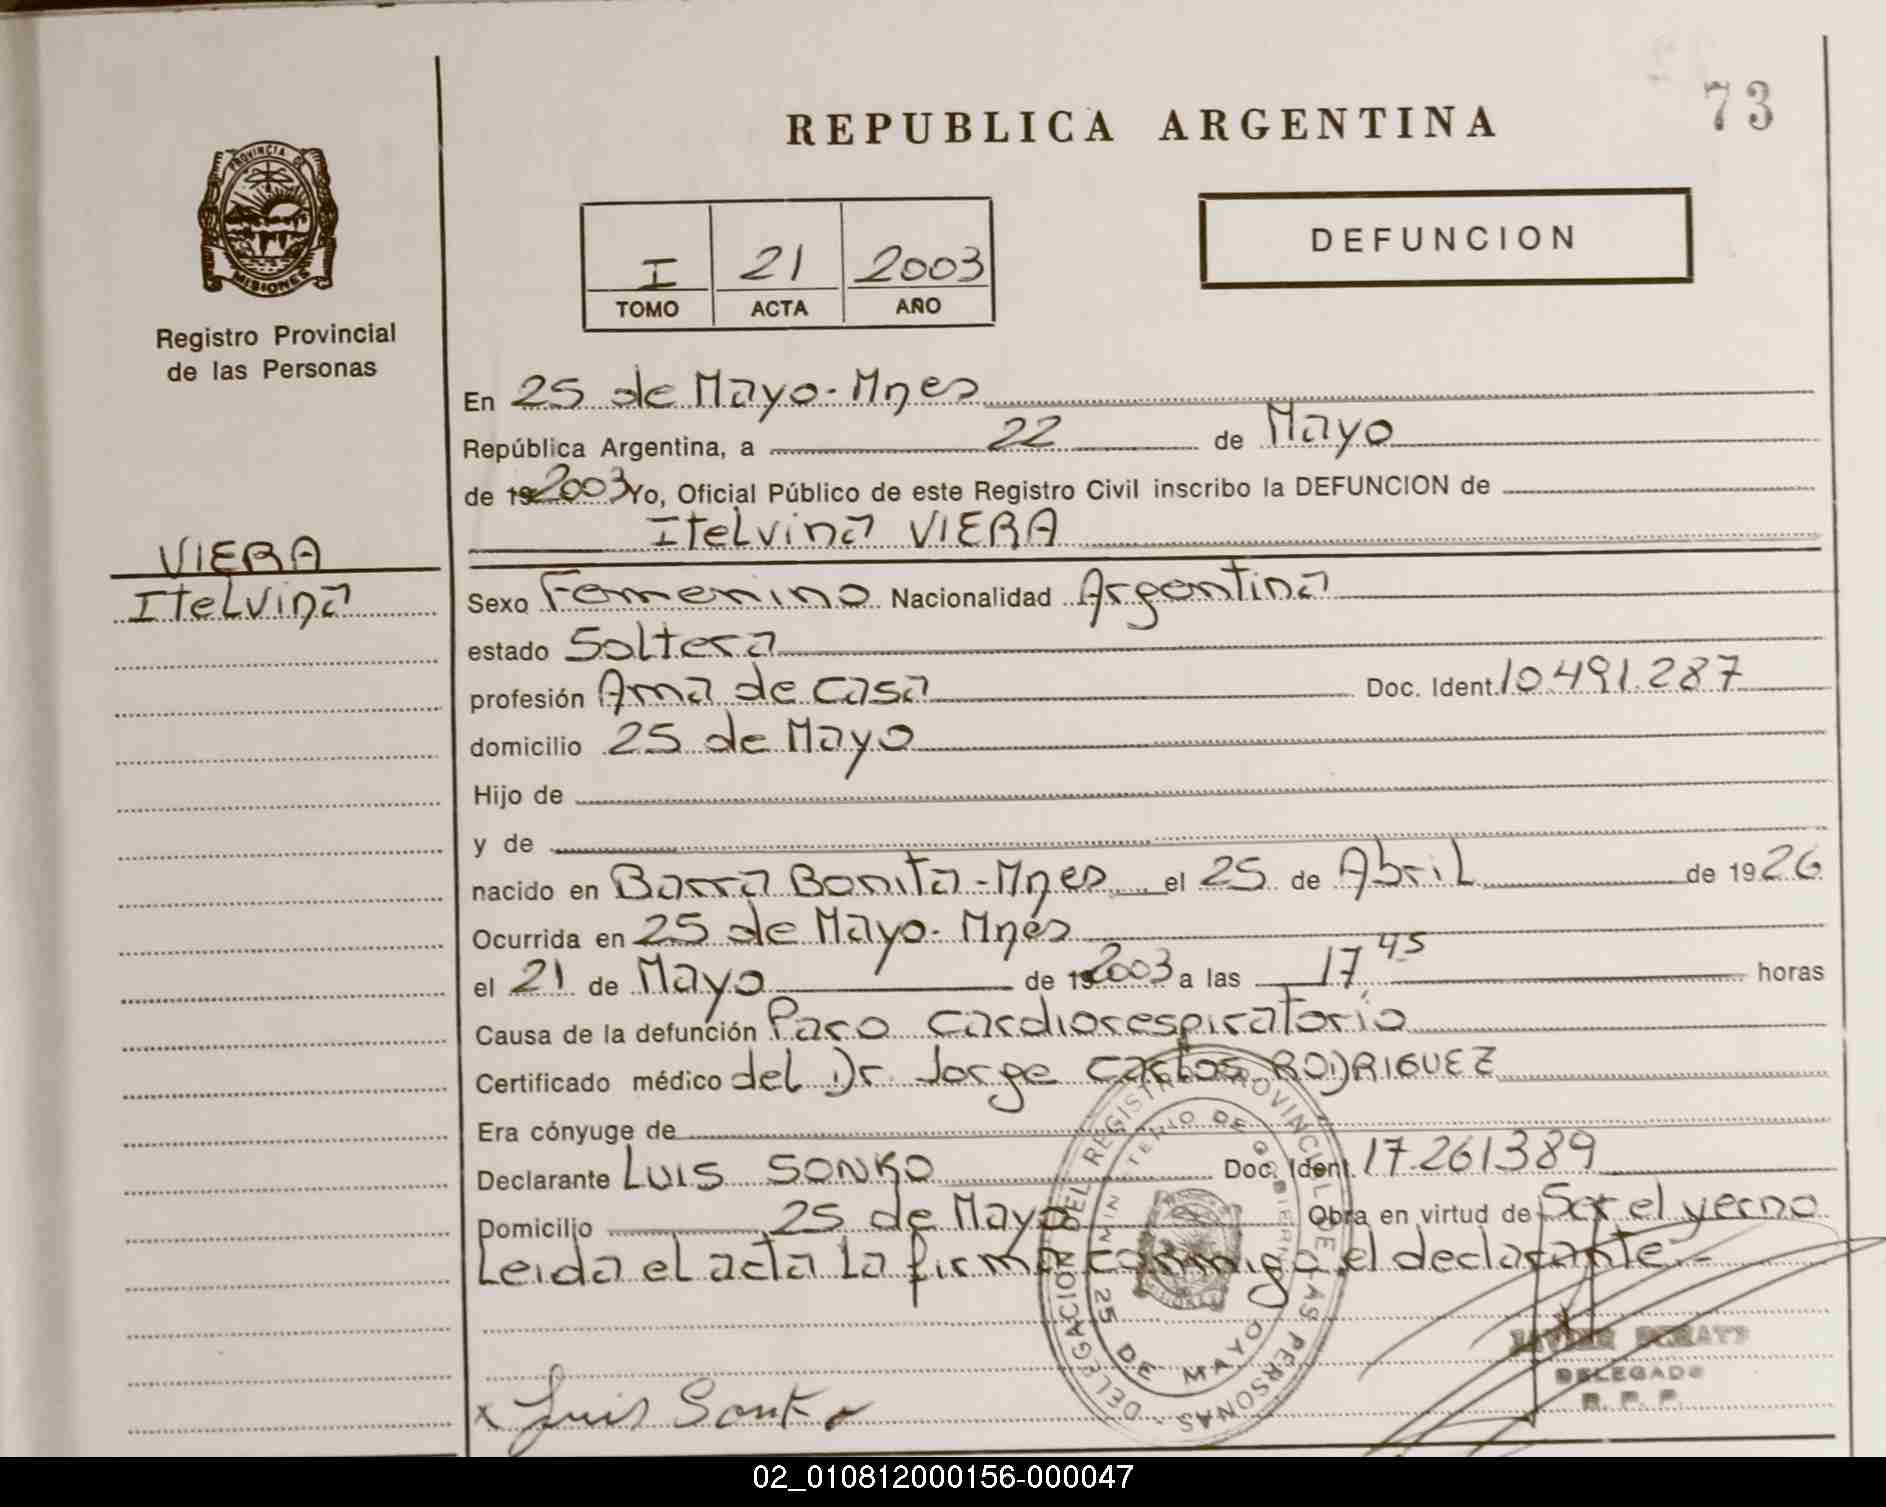 73
REPUBLICA ARGENTINA
PROVINCIA DE
MISIONES
Registro Provincial
de las Personas
I 21 2003
TOMO ACTA AÑO
DEFUNCION
VIERA
Itelvina
En 25 de Mayo - Mnes
República Argentina, a 22 de Mayo
de 19 2003 Yo, Oficial Público de este Registro Civil inscribo la DEFUNCION de
Itelvina VIERA
Sexo Femenino Nacionalidad Argentina
estado Soltera
profesión Ama de casa Doc. Ident. 10.491.287
domicilio 25 de Mayo
Hijo de
y de
nacido en Barra Bonita - Mnes el 25 de Abril de 1926
Ocurrida en 25 de Mayo - Mnes
el 21 de Mayo de 19 2003 a las 17 45 horas
Causa de la defunción Paro cardiorespiratorio
Certificado médico del Dr Jorge Carlos RODRIGUEZ
Era cónyuge de
Declarante LUIS SONKO Doc. Ident. 17.261389
Domicilio 25 de Mayo Obra en virtud de Ser el yerno
Leida el acta la firma conmigo el declarante.-
DELEGACION DEL REGISTRO PROVINCIAL DE LAS PERSONAS
MINISTERIO DE GOBIERNO
25 DE MAYO
DELEGADO
R. P. P.
x Luis Sonko
02_010812000156-000047